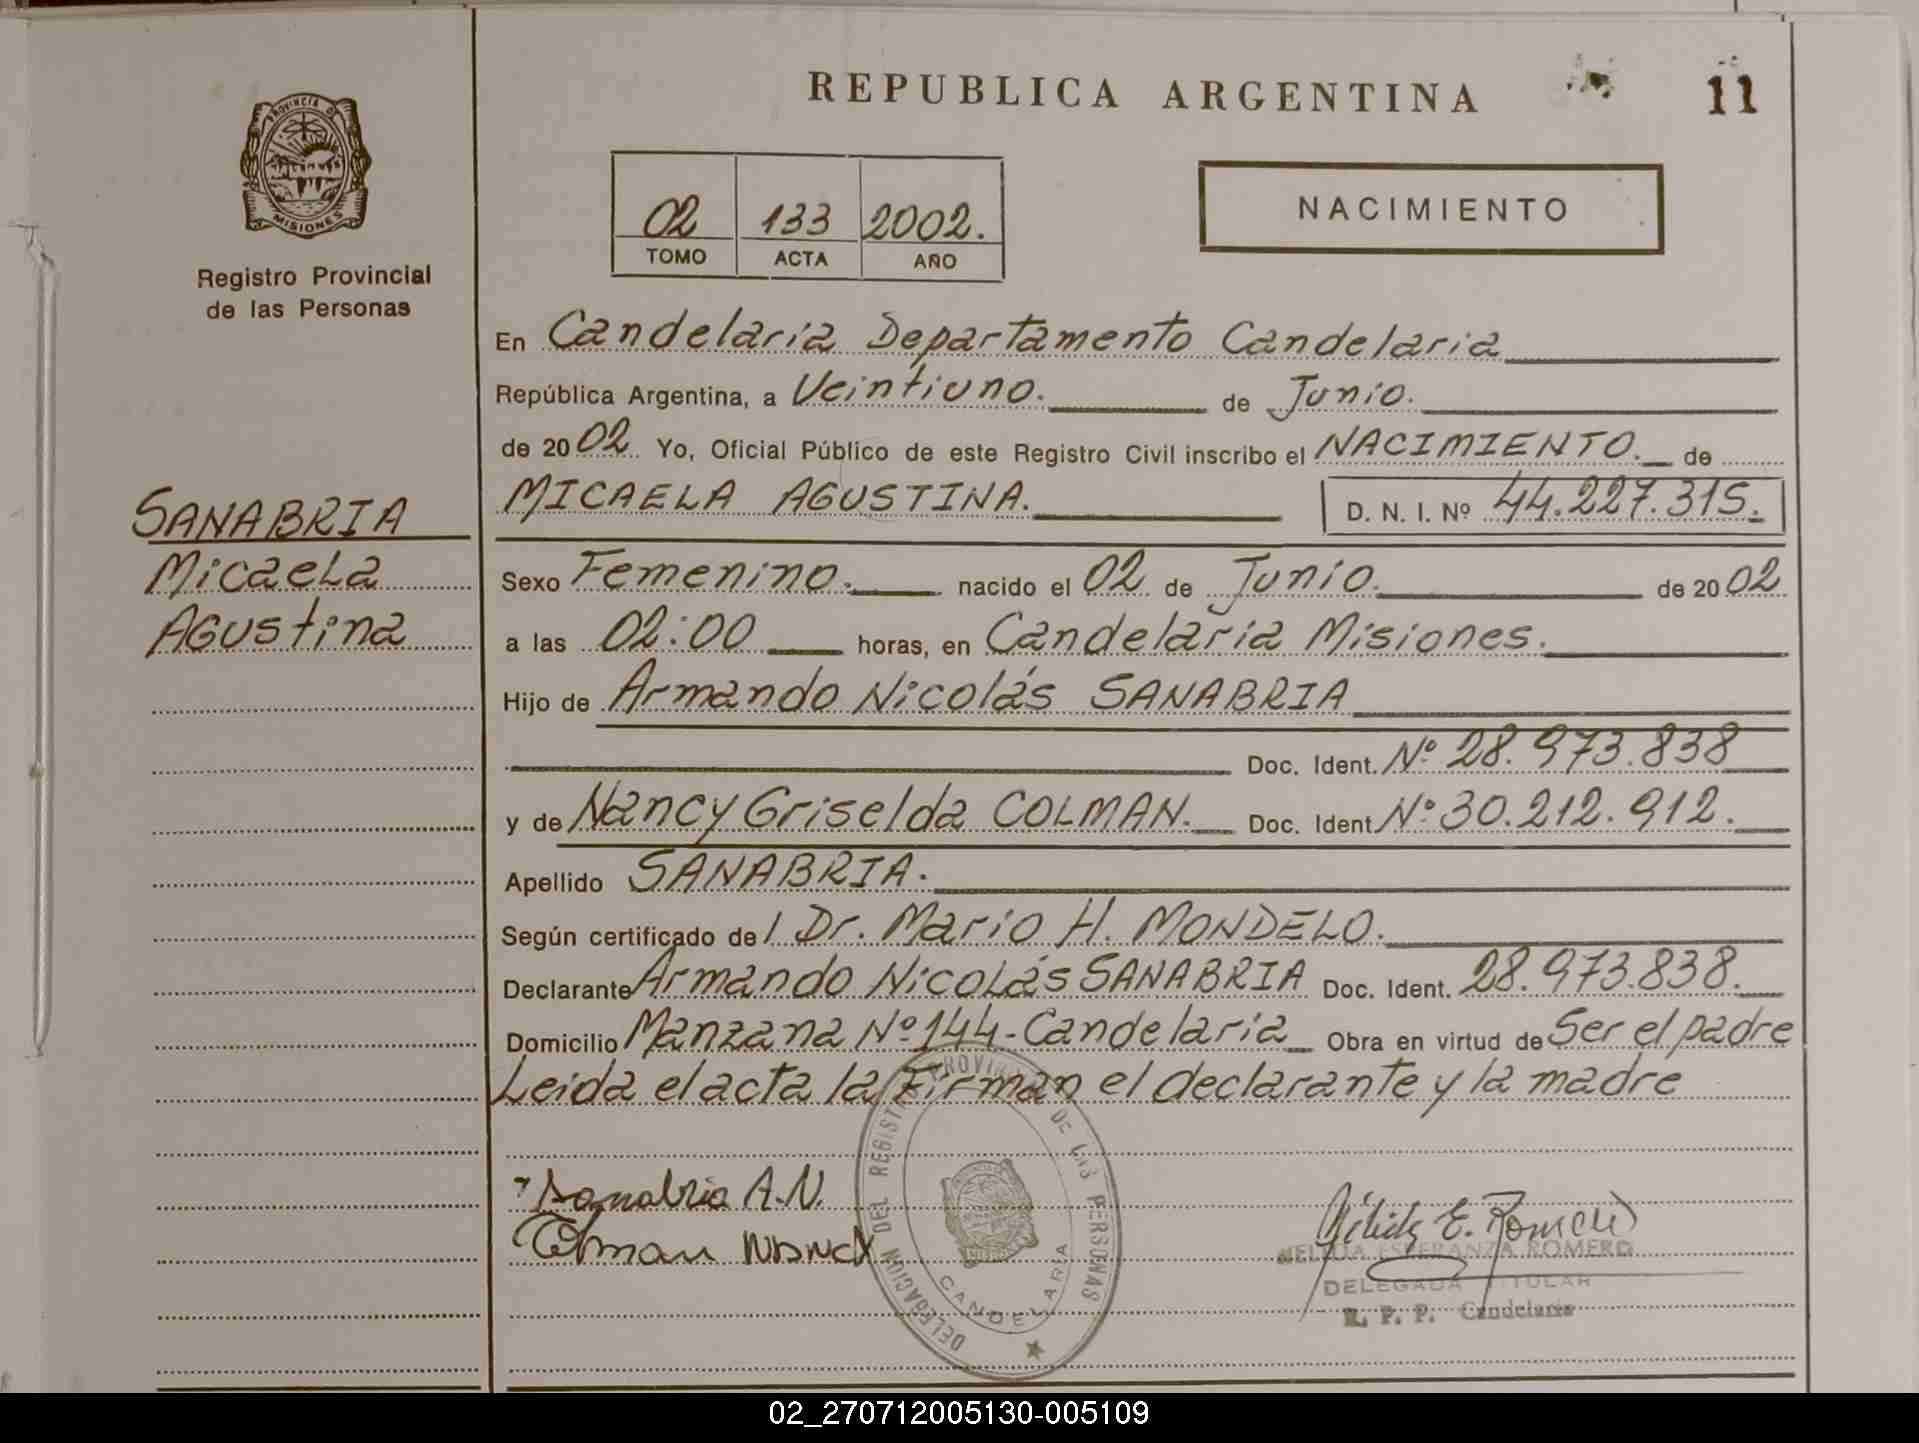 REPUBLICA ARGENTINA
11
PROVINCIA DE
MISIONES
Registro Provincial
de las Personas
02 133 2002.
TOMO ACTA AÑO
NACIMIENTO
En Candelaria Departamento Candelaria
República Argentina, a Veintiuno. de Junio.
de 2002 Yo, Oficial Público de este Registro Civil inscribo el NACIMIENTO. de
MICAELA AGUSTINA. D. N. I. Nº 44.227.315.
SANABRIA
Micaela
Agustina
Sexo Femenino. nacido el 02 de Junio. de 2002
a las 02:00 horas, en Candelaria Misiones.
Hijo de Armando Nicolás SANABRIA
Doc. Ident. Nº 28.973.838
y de Nancy Griselda COLMAN. Doc. Ident Nº 30.212.912.
Apellido SANABRIA.
Según certificado del Dr. Mario H. MONDELO.
Declarante Armando Nicolás SANABRIA Doc. Ident. 28.973.838.
Domicilio Manzana Nº 144-Candelaria Obra en virtud de Ser el padre
Leida el acta la Firman el declarante y la madre
Sanabria A.N.
Colman Nancy
DELEGACION DEL REGISTRO PROVINCIAL DE LAS PERSONAS
CANDELARIA
E. Romero
NELIDA ESPERANZA ROMERO
DELEGADA TITULAR
R. P. P. Candelaria
02_270712005130-005109